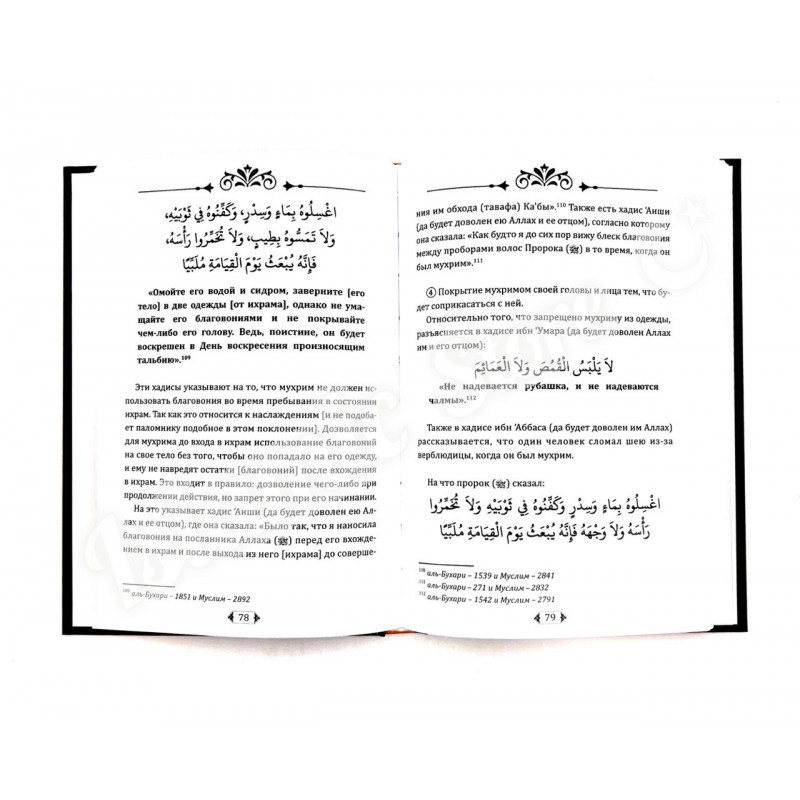 اغْسِلُوهُ بِمَاءٍ وَسِدْرٍ، وَكَفِّنُوهُ فِي ثَوْبَيْهِ،
وَلاَ تَمَسُّوهُ بِطِيبٍ، وَلاَ تُخَمِّرُوا رَأْسَهُ،
فَإِنَّهُ يُبْعَثُ يَوْمَ الْقِيَامَةِ مُلَبِّيًا
«Омойте его водой и сидром, заверните [его
тело] в две одежды [от ихрама], однако не ума-
щайте его благовониями и не покрывайте
чем-либо его голову. Ведь, поистине, он будет
воскрешен в День воскресения произносящим
тальбию».¹⁰⁹
Эти хадисы указывают на то, что мухрим не должен ис-
пользовать благовония во время пребывания в состоянии
ихрам. Так как это относится к наслаждениям [и не подоба-
ет паломнику подобное в этом поклонении]. Дозволяется
для мухрима до входа в ихрам использование благовоний
на свое тело без того, чтобы оно попадало на его одежду,
и ему не навредят остатки [благовоний] после вхождения
в ихрам. Это входит в правило: дозволение чего-либо при
продолжении действия, но запрет этого при его начинании.
На это указывает хадис ‘Аиши (да будет доволен ею Ал-
лах и ее отцом), где она сказала: «Было так, что я наносила
благовония на посланника Аллаха (ﷺ) перед его вхожде-
нием в ихрам и после выхода из него [ихрама] до соверше-
¹⁰⁹ аль-Бухари – 1851 и Муслим – 2892
78
ния им обхода (тавафа) Ка‘бы».¹¹⁰ Также есть хадис ‘Аиши
(да будет доволен ею Аллах и ее отцом), согласно которому
она сказала: «Как будто я до сих пор вижу блеск благовония
между проборами волос Пророка (ﷺ) в то время, когда он
был мухрим».¹¹¹
④ Покрытие мухримом своей головы и лица тем, что бу-
дет соприкасаться с ней.
Относительно того, что запрещено мухриму из одежды,
разъясняется в хадисе ибн ‘Умара (да будет доволен Аллах
им и его отцом):
لاَ يَلْبَسُ الْقُمُصَ وَلاَ الْعَمَائِمَ
«Не надевается рубашка, и не надеваются
чалмы».¹¹²
Также в хадисе ибн ‘Аббаса (да будет доволен им Аллах)
рассказывается, что один человек сломал шею из-за
верблюдицы, когда он был мухрим.
На что пророк (ﷺ) сказал:
اغْسِلُوهُ بِمَاءٍ وَسِدْرٍ وَكَفِّنُوهُ فِي ثَوْبَيْهِ وَلاَ تُخَمِّرُوا
رَأْسَهُ وَلاَ وَجْهَهُ فَإِنَّهُ يُبْعَثُ يَوْمَ الْقِيَامَةِ مُلَبِّيًا
¹¹⁰ аль-Бухари – 1539 и Муслим – 2841
¹¹¹ аль-Бухари – 271 и Муслим – 2832
¹¹² аль-Бухари – 1542 и Муслим – 2791
79